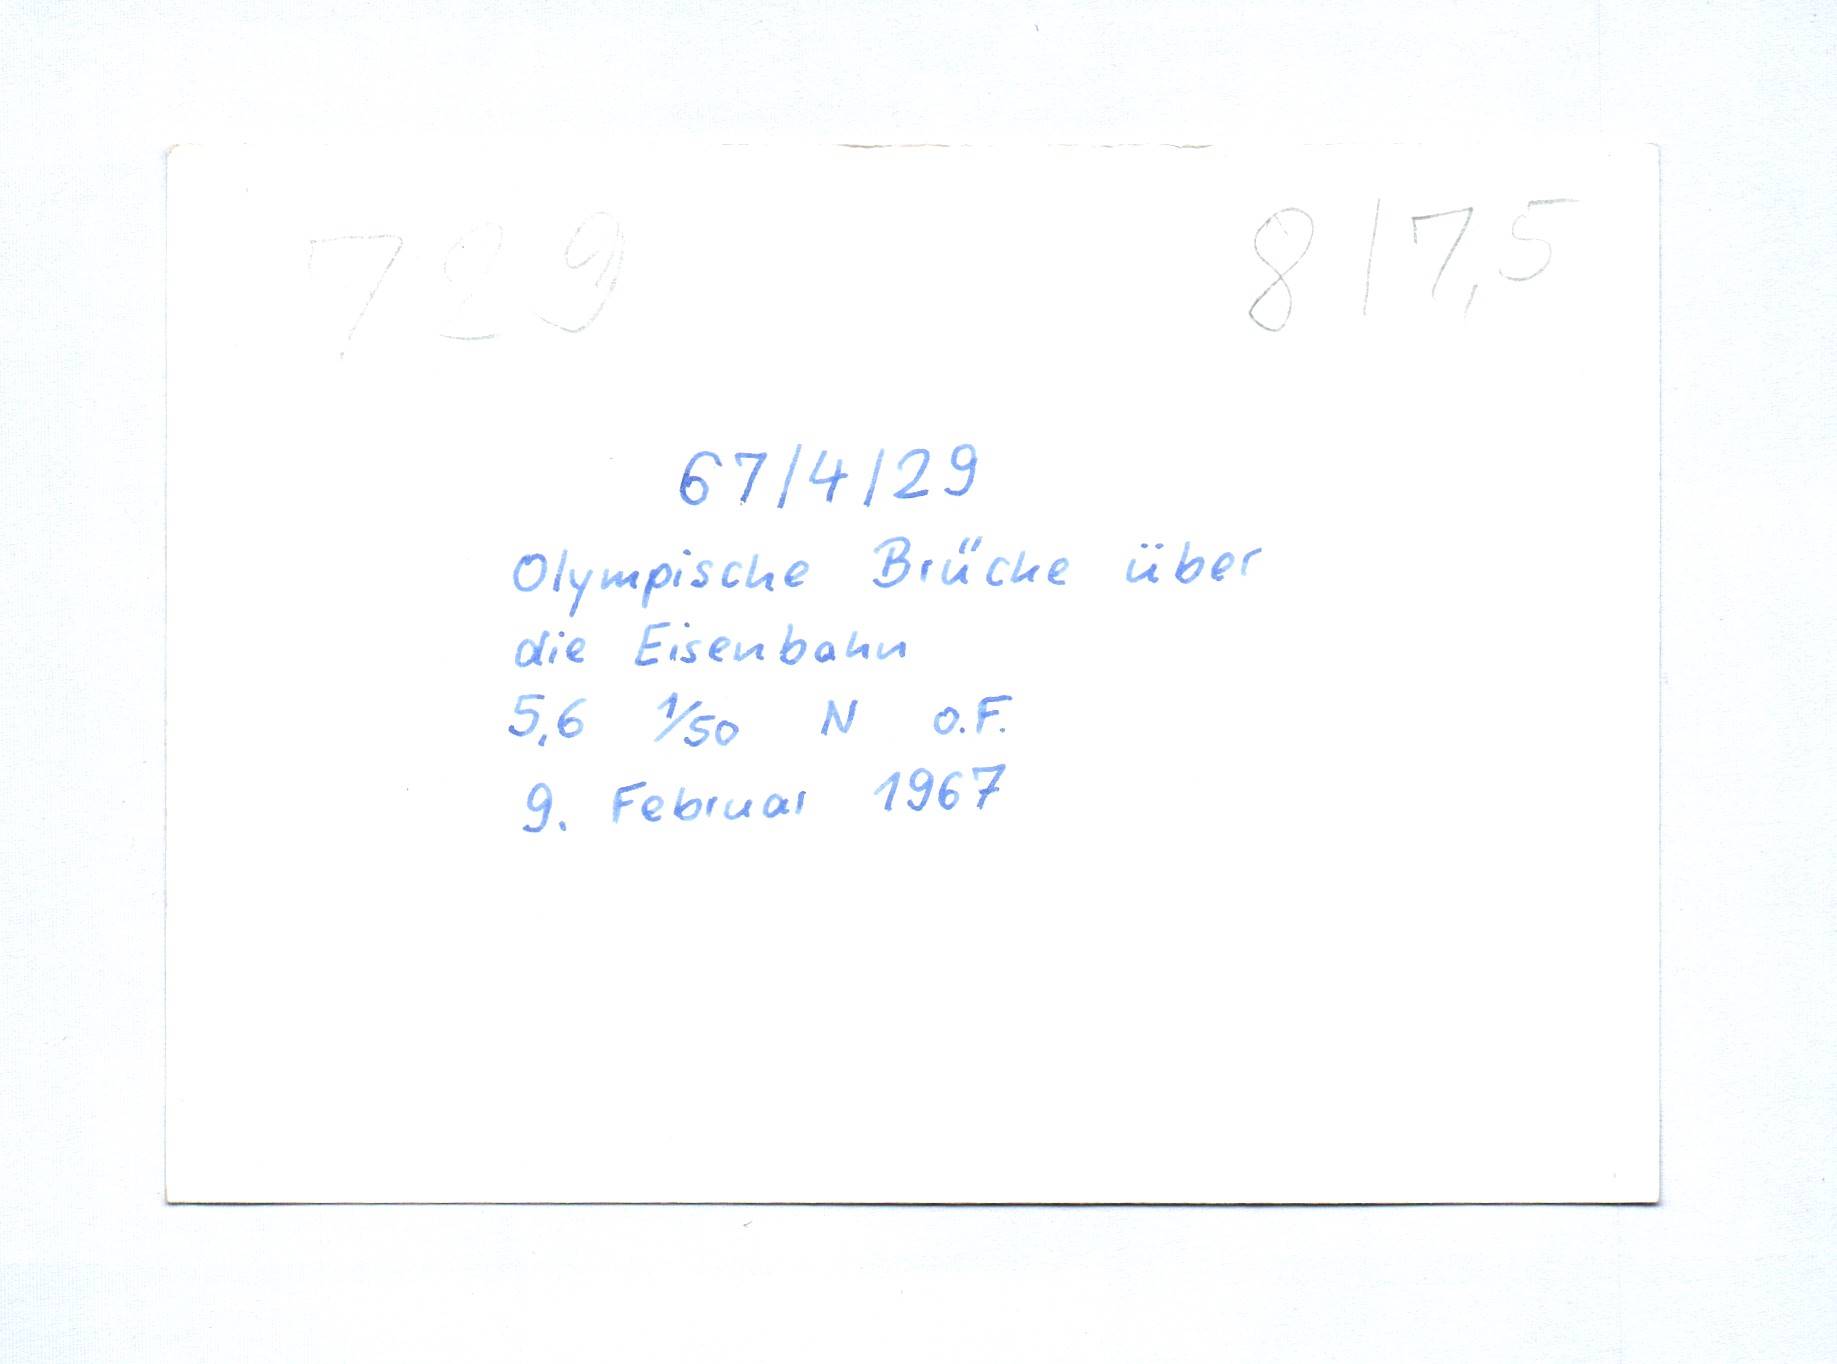 729
8/7,5
67/4/29
Olympische Brücke über
die Eisenbahn
5,6 1/50 N o.F.
9. Februar 1967